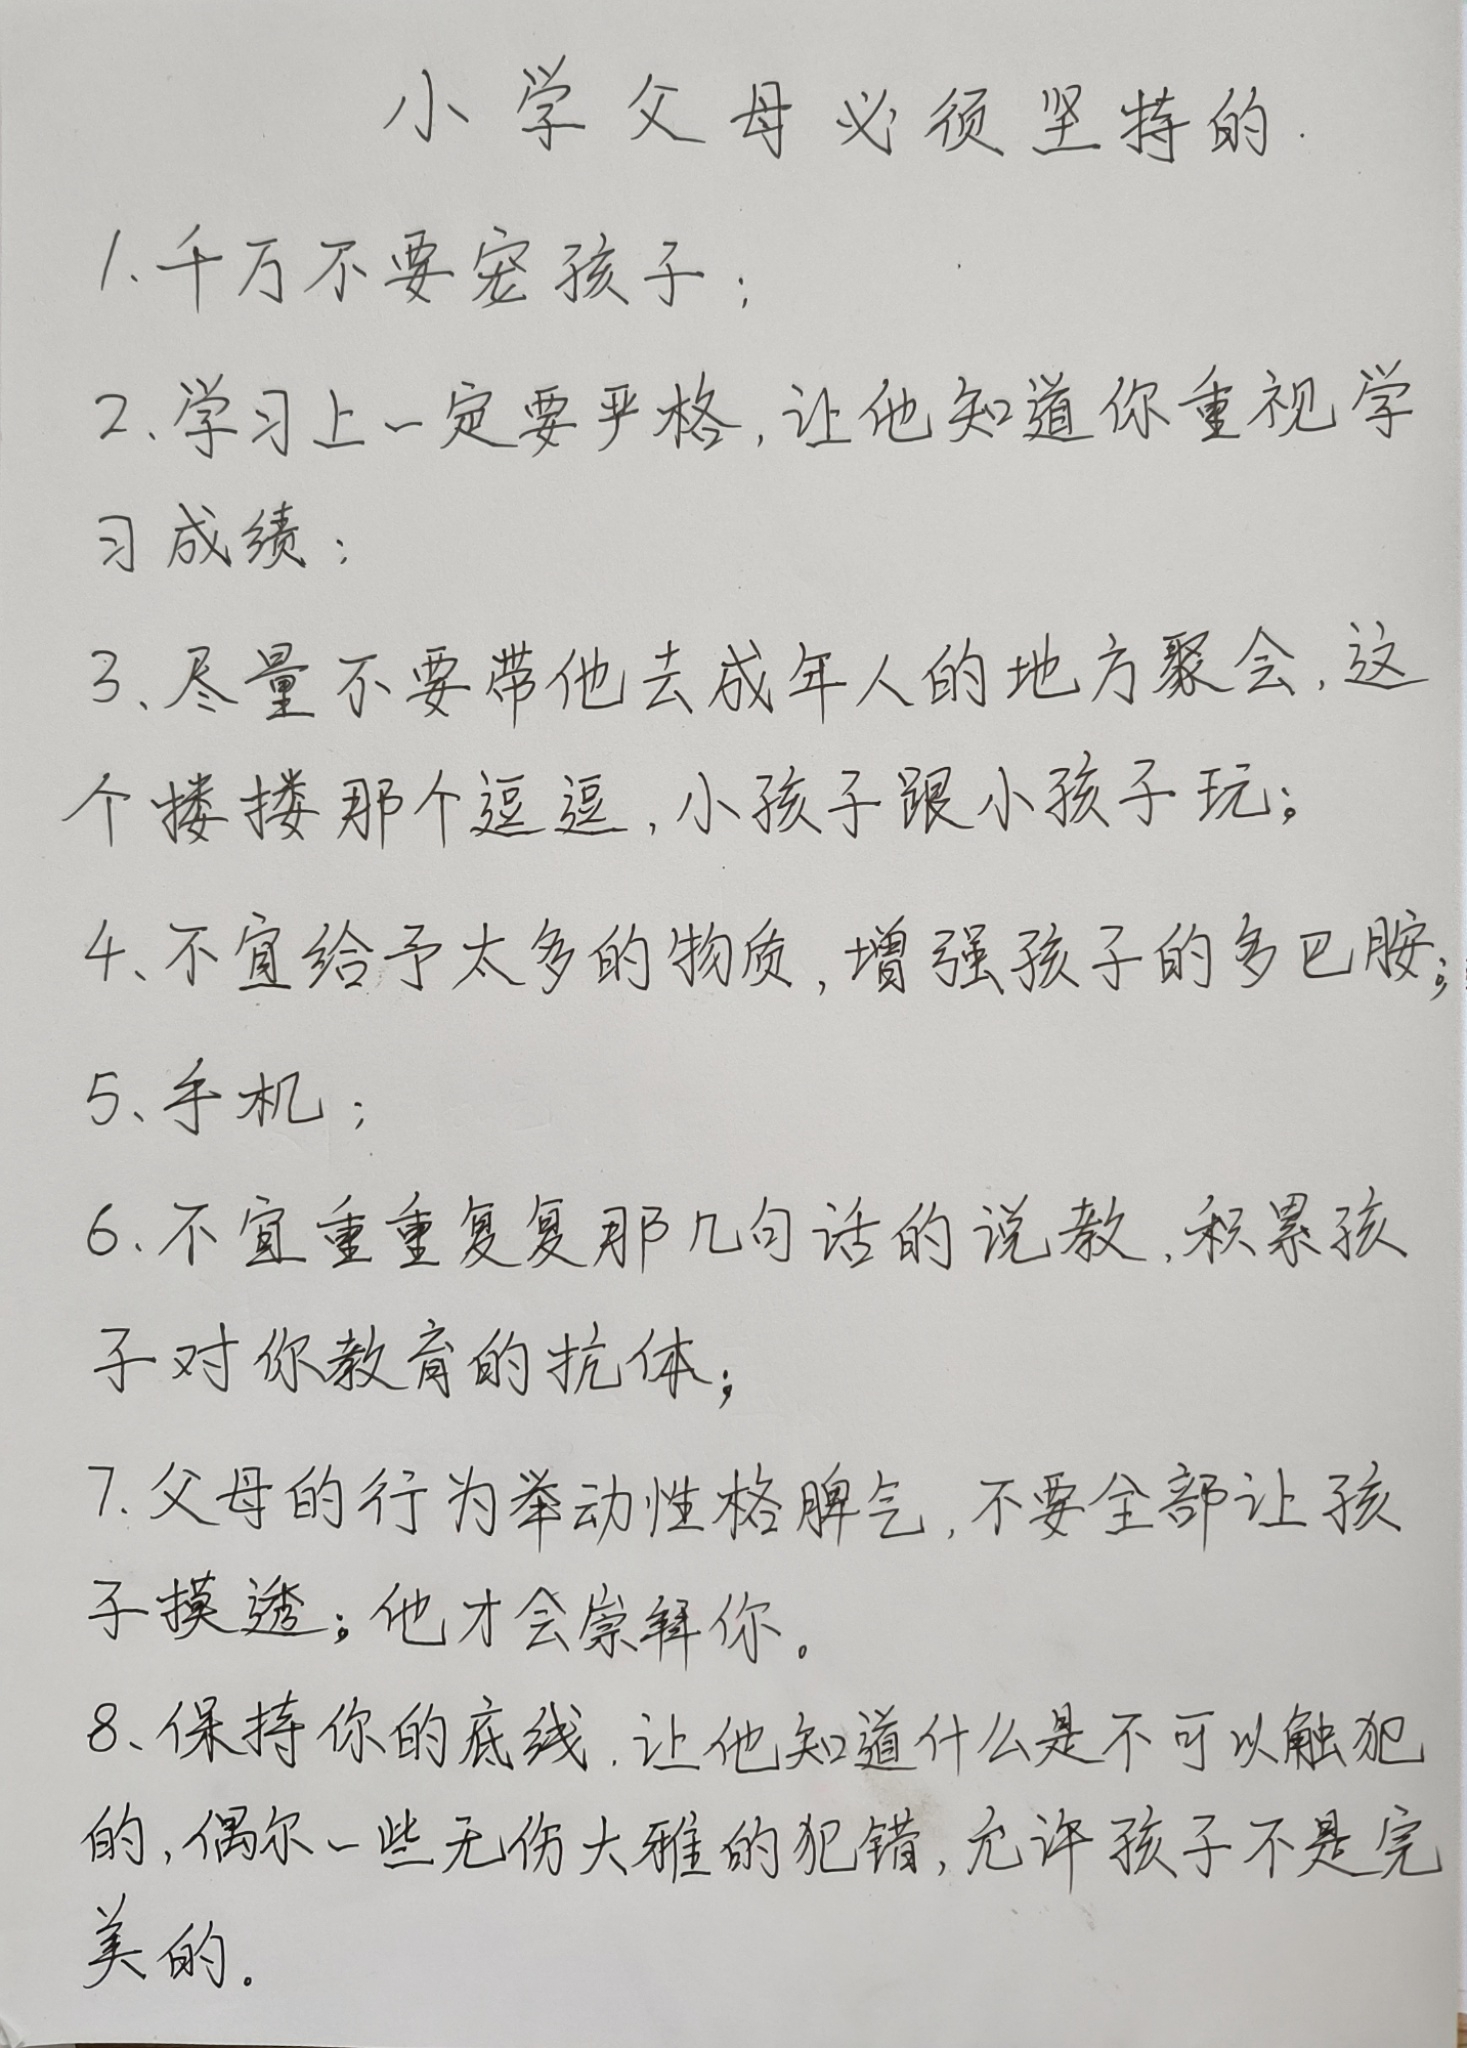 小学父母必须坚持的.
1.千万不要宠孩子;
2、学习上一定要严格,让他知道你重视学
习成绩;
3、尽量不要带他去成年人的地方聚会,这
个搂搂那个逗逗,小孩子跟小孩子玩;
4、不宜给予太多的物质,增强孩子的多巴胺;
5、手机;
6、不宜重重复复那几句话的说教,积累孩
子对你教育的抗体;
7.父母的行为举动性格脾气,不要全部让孩
子摸透;他才会崇拜你。
8、保持你的底线,让他知道什么是不可以触犯
的,偶尔一些无伤大雅的犯错,允许孩子不是完
美的。